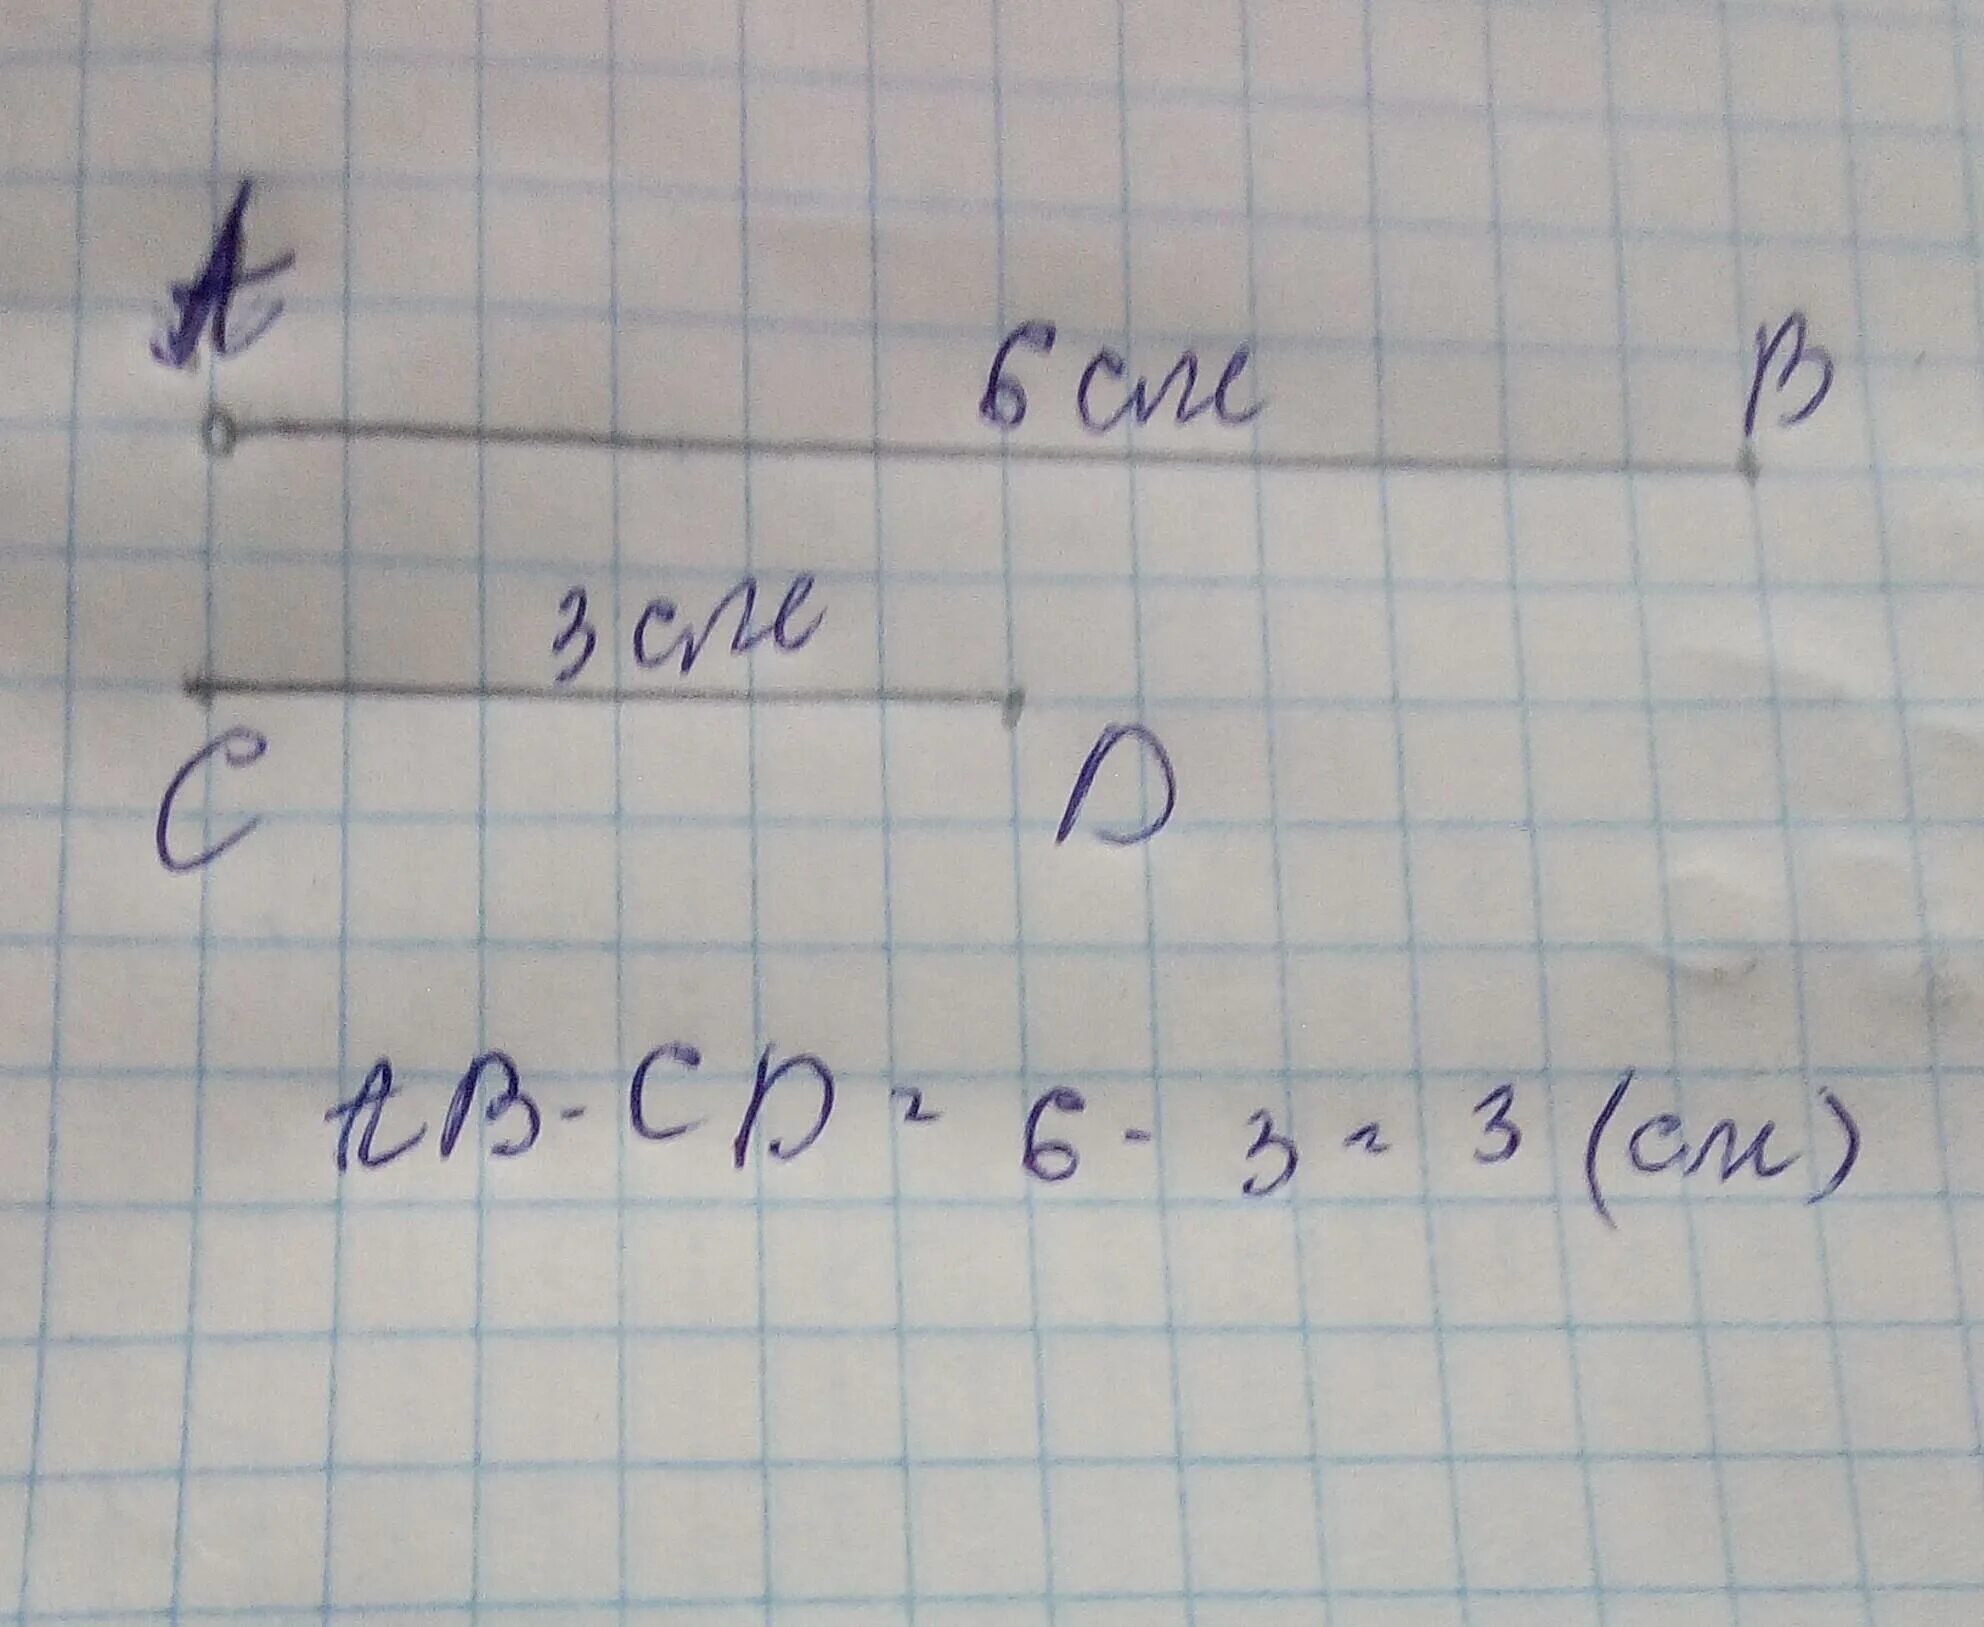 A
6 см
B
3 см
C
D
AB - CD = 6 - 3 = 3 (см)